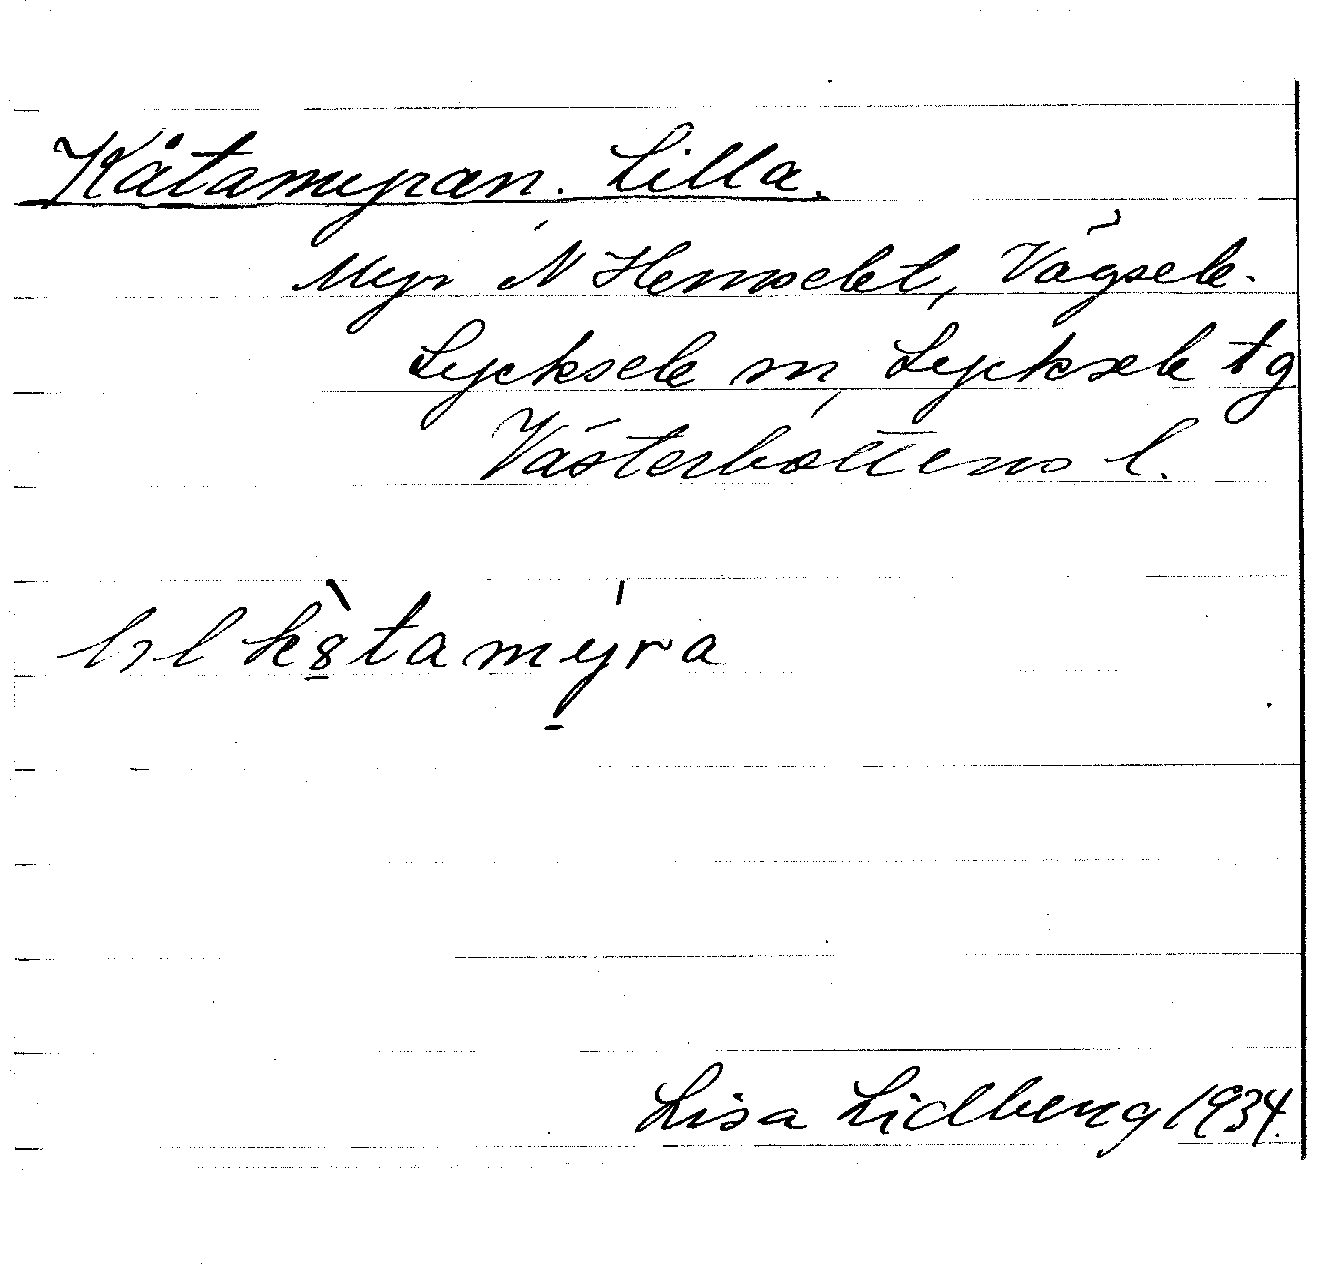 Kåtamyran. Lilla.
Myr N Hemselet, Vägsele.
Lycksele sn, Lycksele tg
Västerbottens l.
lsl k
tamyra
Lisa Lidberg 1934.